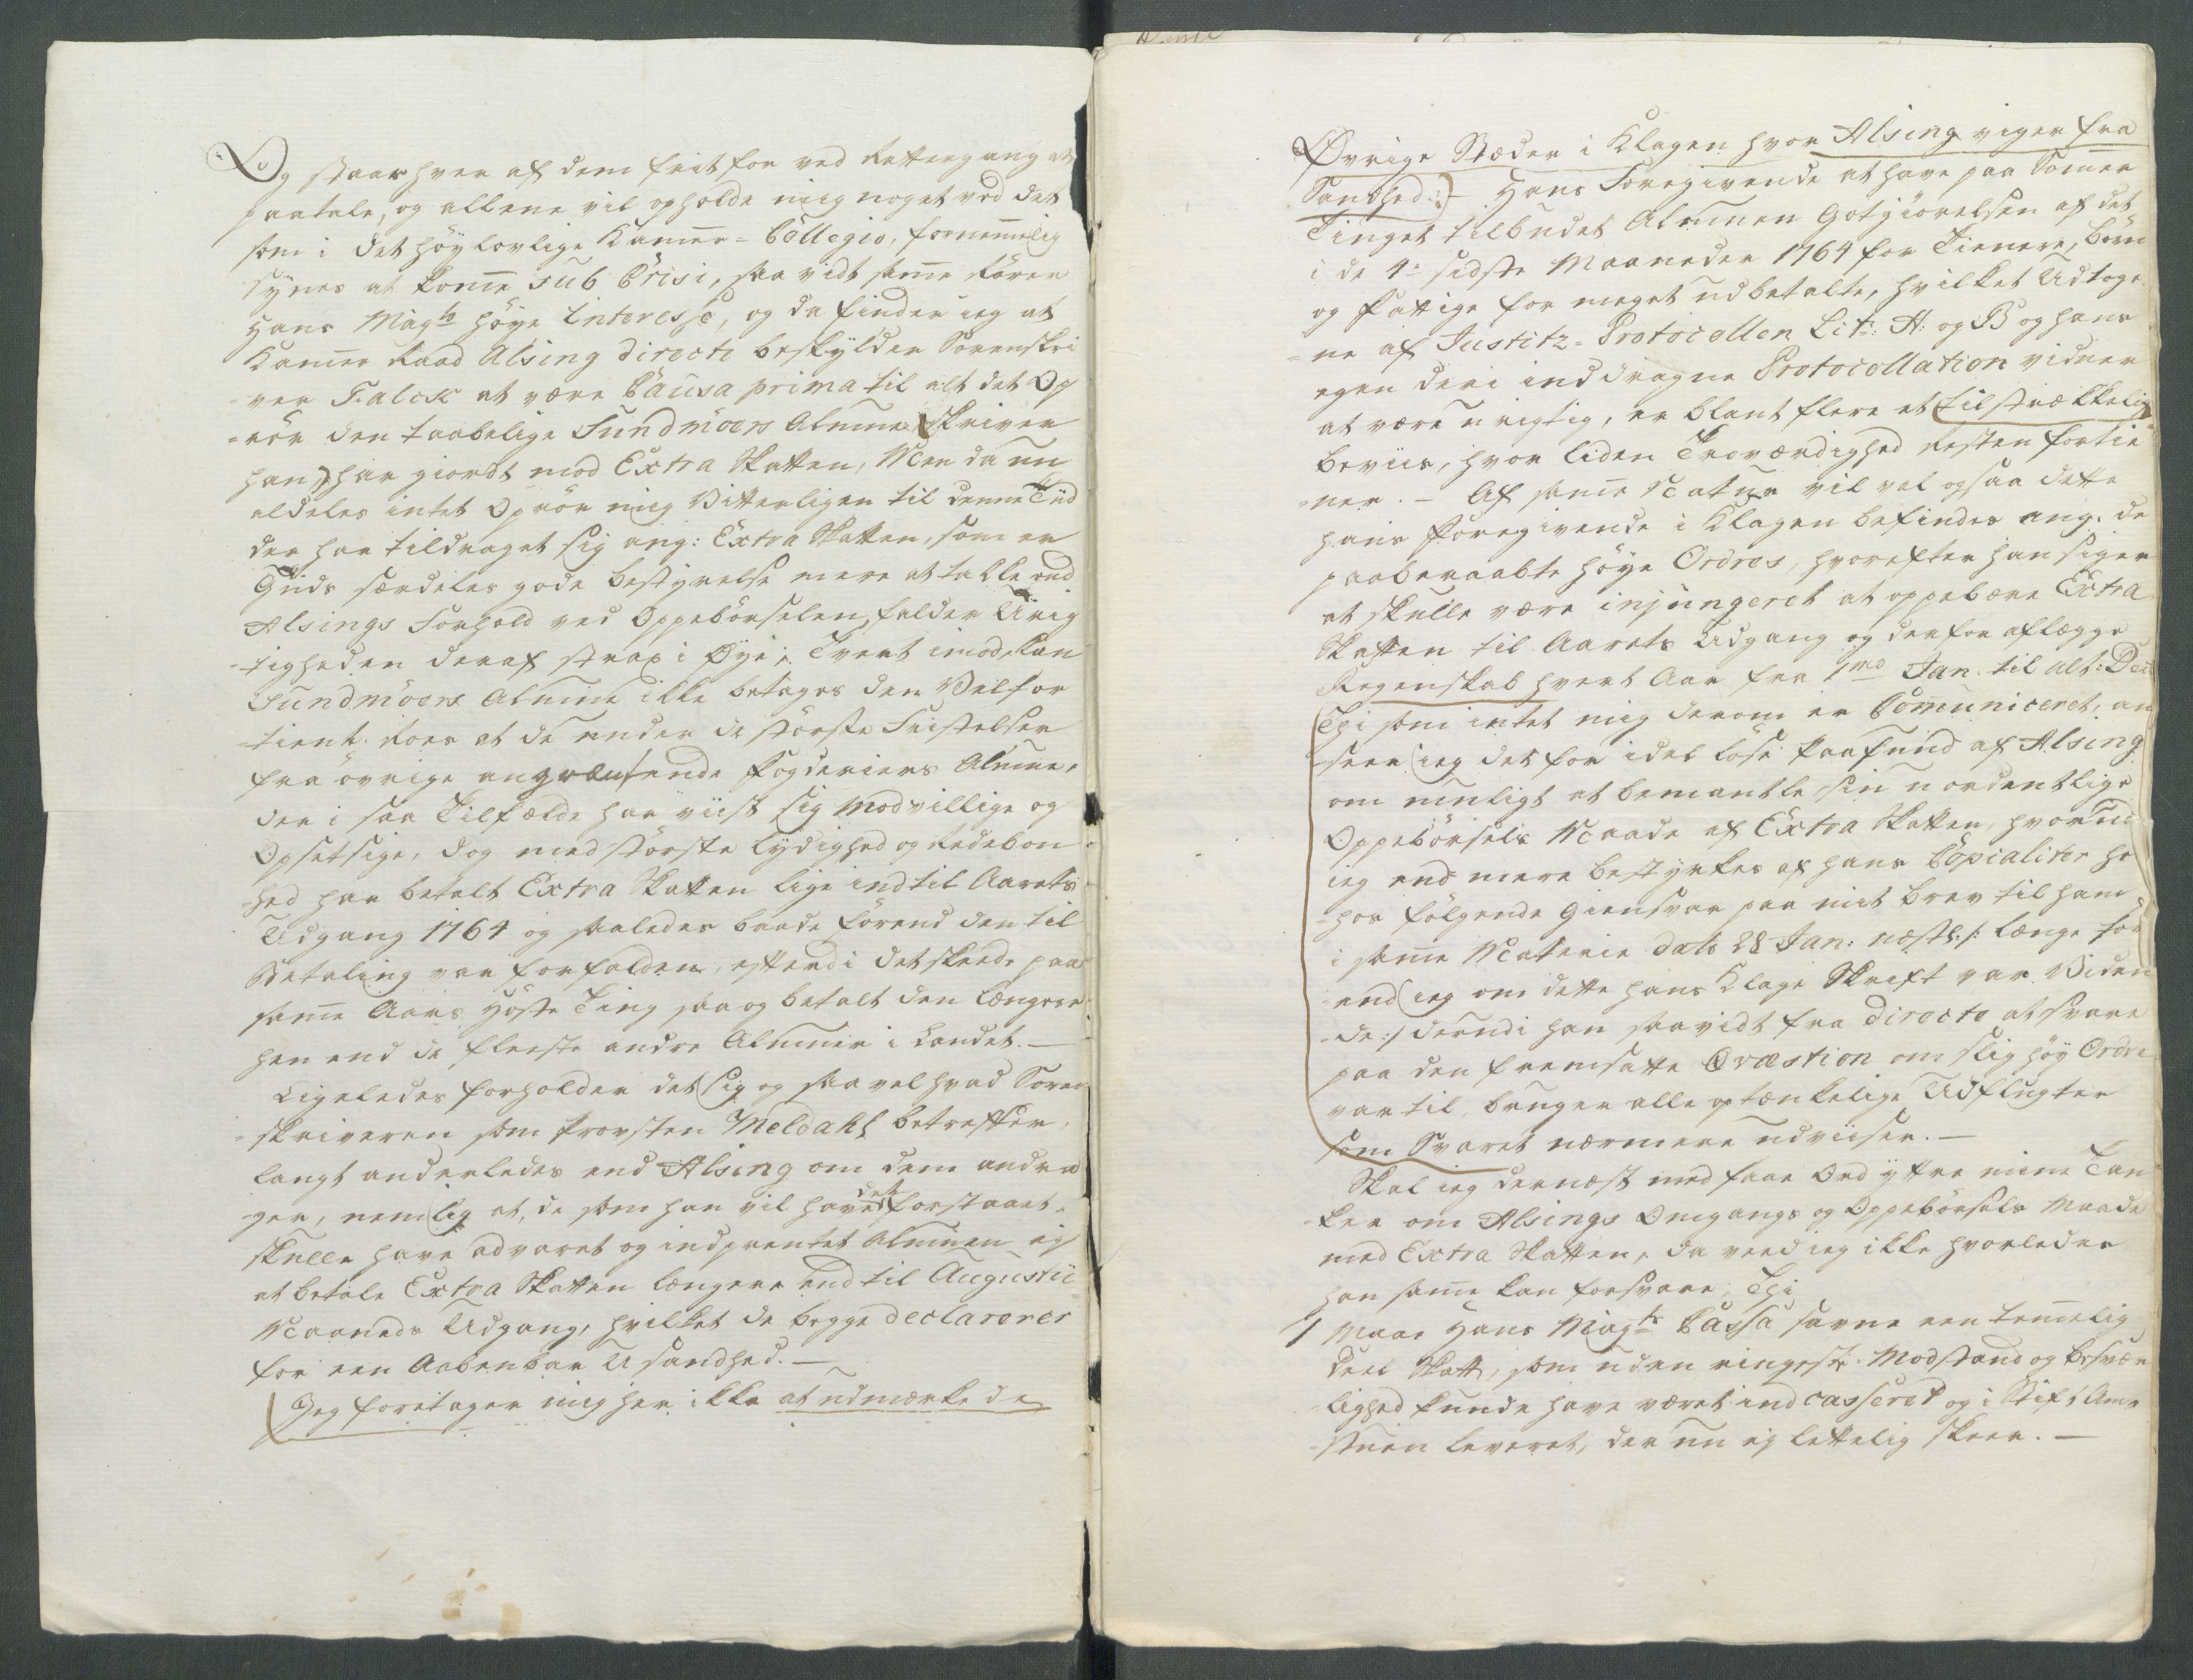 Og staar hver af dem frit for ved Rettergang at
paatale, og allene vil opholde mig noget ved det
som i det höylovlige Kammer-Collegio, fornemmelig
synes at komme sub Crisi, saa vidt samme Rörer
Hans Mayts höye Interesse, og da finder ieg at
Kammer Raad Alsing directe beskylder Sorenskri
ver Falck at være Causa prima til alt det Op
-rör den taabelige Sundmöers Almue (skriver
han) har giordt mod Extra Skatten, Men da nu
aldeles intet Oprör mig Vitterligen til denne Tiid
der har tildraget sig ang: Extra Skatten, som er
Guds særdeles gode bestyrelse mere at takke end
Alsings Forhold ved Oppebörselen, falder Urig
-tigheden deraf strax i Öye; Tvert imod, kan
Sundmöers Almue ikke betages den Velfor
-tient Roes at de under de störste Fristelser
fra övrige angrændsende Fogderiers Almue,
der i saa Tilfælde har viist sig Modvillige og
Opsetsige, dog med störste Lydighed og Redebon
-hed har betalt Extra Skatten lige indtil Aarets
Udgang 1764 og saaledes baade förend den til
Betaling var forfalden, efterdi det skeede paa
samme Aars Höste Ting saa og betalt den længere
hen end de fleeste andre Almuer i Landet. —
Ligeledes forholder det sig og saavel hvad Soren
-skriveren som Provsten Meldahl betreffer,
langt anderledes end Alsing om dem andra
-ger, nemlig at, de som han vil have det forstaaet,
skulle have advaret og indprentet Almuen ej
at betale Extra Skatten længere end til Augustii
Maaneds Udgang, hvilket de begge declarerer
for een Aabenbar Usandhed. —
Jeg foretager mig her ikke at udmærke de
Övrige Stæder i Klagen hvor Alsing viger fra
Sandhed:) Hans Foregivende at have paa Sommer
Tinget tilbudet Almuen Gotgiörelsen af det
i de 4: sidste Maaneder 1764 for Tienere, Börn
og Fattige for meget udbetalte, hvilket Udtoge
-ne af Justitz-Protocollen Litr: A: og B og hans
egen deri inddragne Protocollation vidner
at være urigtig, er blant flere et tilstrækkelig
beviis, hvor liden Troværdighed Resten fortie
-ner. — Af samme Natur vil vel ogsaa dette
hans Foregivende i Klagen befindes ang. de
paaberaabte höye Ordres, hvorefter han siger
at skulle være injungeret at oppebære Extra
Skatten til Aarets Udgang og derfor aflægge
Regenskab hvert Aar fra 1md Jan. til ult: Dec
Thi som intet mig derom er Communiceret, an
seer ieg det for idel löse Paafund af Alsing
om muligt at bemantle sin uordentlige
Oppebörsels Maade af Extra Skatten, hvorud
ieg end mere bestyrkes af hans Copialiter he
-hos fölgende Giensvar paa mit brev til ham
i samme Materie dat: 28 Jan: næstl: /: længe för
-end ieg om dette hans Klage Skrift var Viden
-de :/ derudi han saavidt fra directe at svare
paa den fremsatte Qvæstion om slig höy Ordre
var til, bruger alle optænkelige Udflugter
som Svaret nærmere udviiser. —
Skal ieg dernæst med faae Ord yttre mine Tan
-ker om Alsings Omgangs og Oppebörsels Maade
med Extra Skatten, da veed ieg ikke hvorledes
han samme kan forsvare, Thi
1 Maae Hans Mayts Cassa savne een temmelig
deel Skatt, som uden ringeste Modstand og besvær
-lighed kunde have været indcasseret og i Stift Amt
-stuen leveret, der nu ej lettelig skeer. —